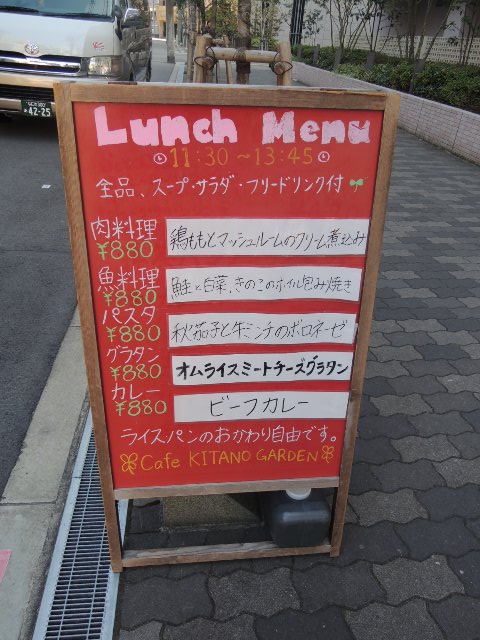 Lunch Menu
11:30 ~13:45
全品、スープ・サラダ・フリードリンク付
肉料理 ¥880 鶏ももとマッシュルームのクリーム煮込み
魚料理 ¥880 鮭と白菜、きのこのホイル包み焼き
パスタ ¥880 秋茄子と牛ミンチのボロネーゼ
グラタン ¥880 オムライスミートチーズグラタン
カレー ¥880 ビーフカレー
ライスパンのおかわり自由です。
Cafe KITANO GARDEN
42-25